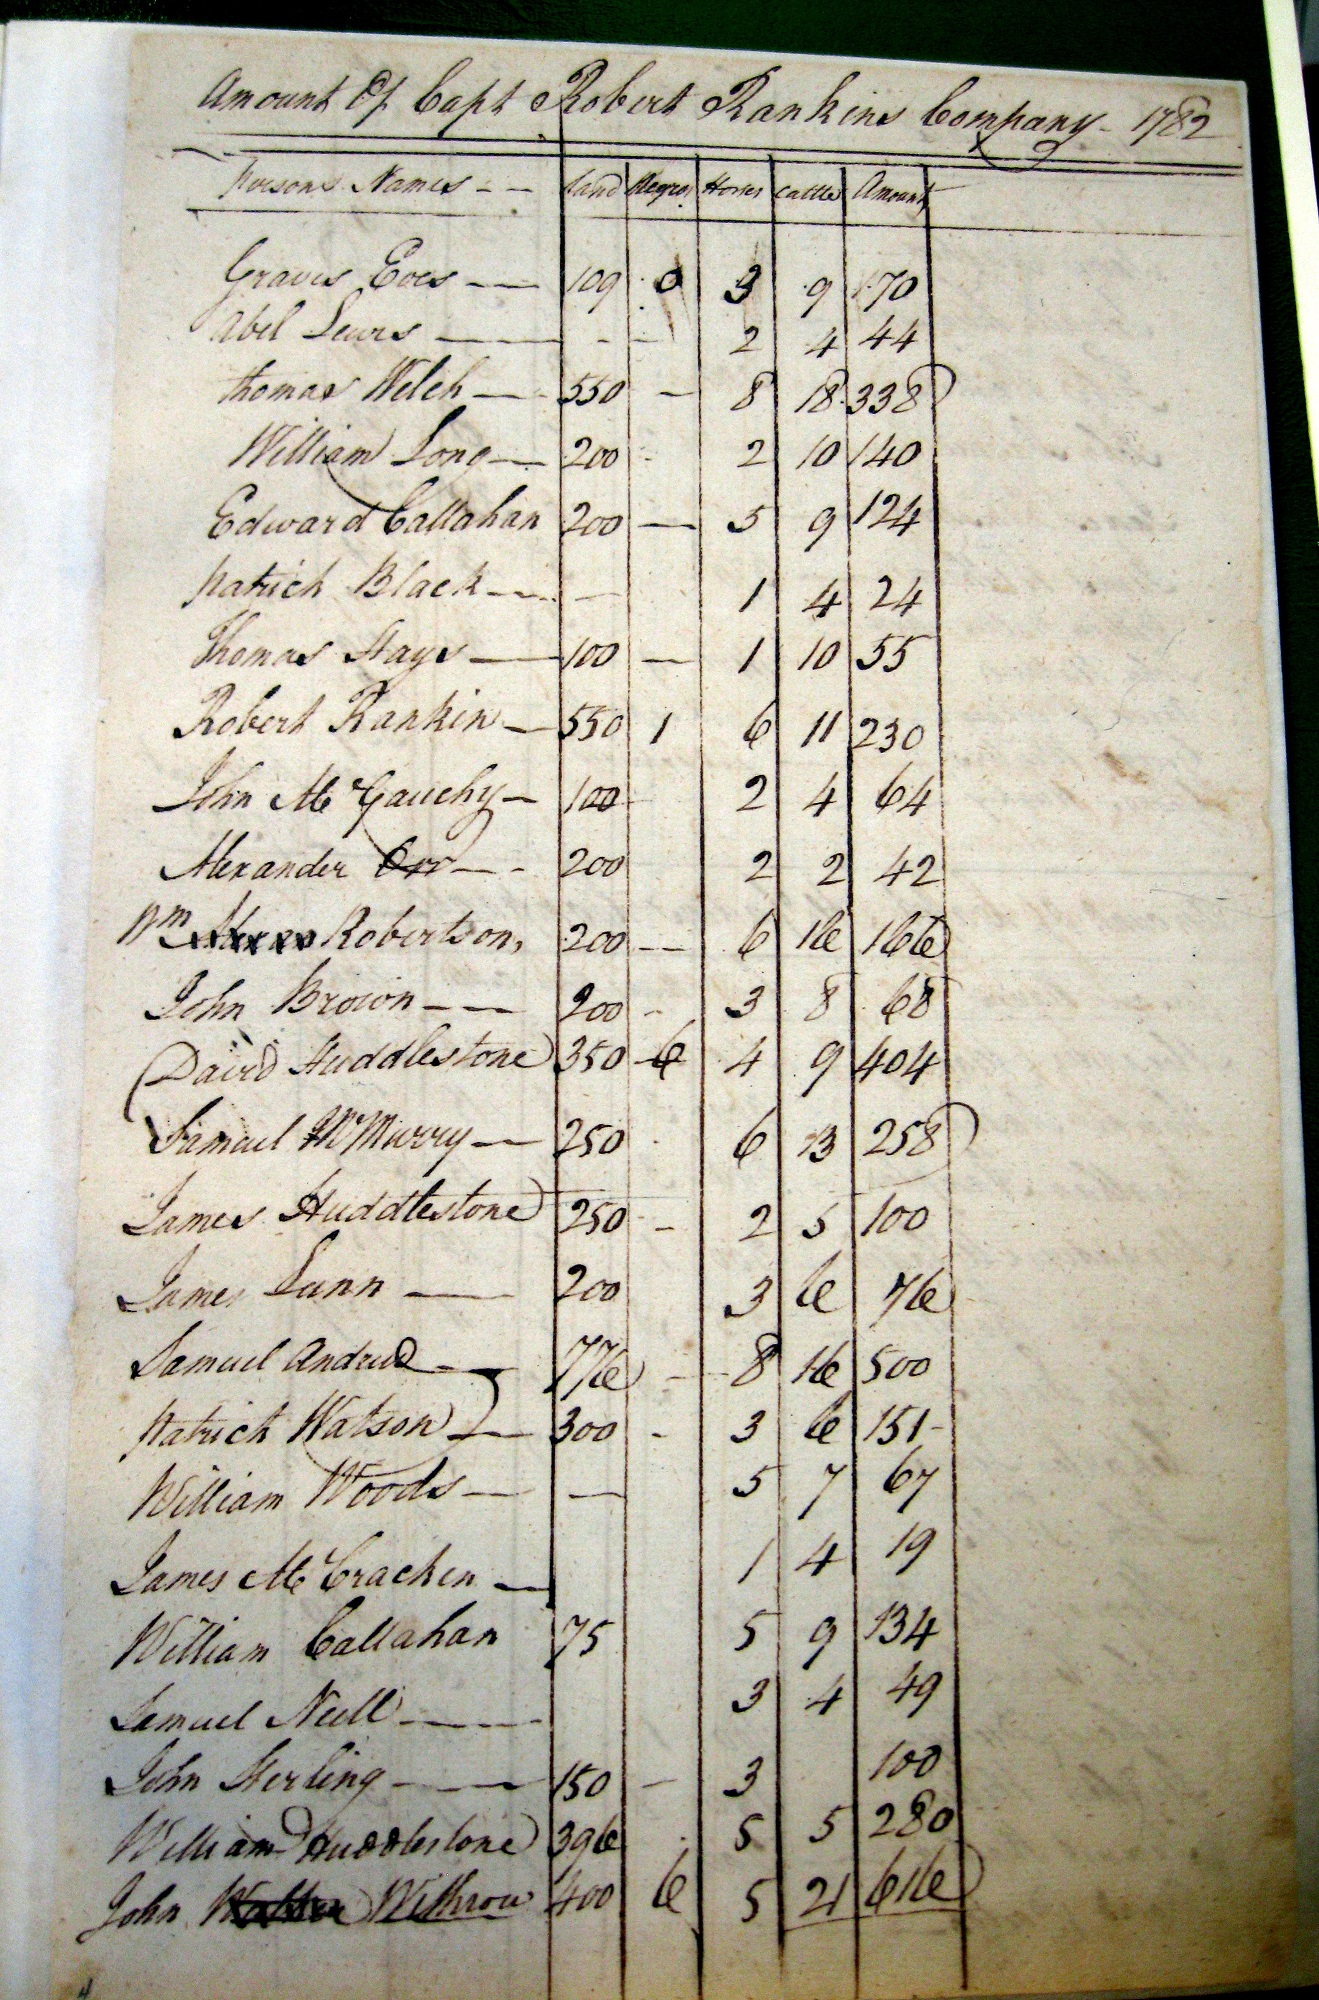 Amount Of Capt Robert Rankins Company - 1782
Persons Names - - Land Negros Horses Cattle Amount
Graves Eoes - - 109 0 3 9 170
Abel Lewis - - - - 2 4 44
thomas Welch - - 550 - 8 18 338
William Long - - 200 - 2 10 140
Edward Callahan 200 - 5 9 124
Patrick Black - - - 1 4 24
Thomas Hays - 100 - 1 10 55
Robert Rankin - 550 1 6 11 230
John McGauchy - 100 2 4 64
Alexander Orr - - 200 2 2 42
Wm Robertson, 200 - - 6 16 166
John Brown - - 200 - 3 8 68
David Huddlestone 350 6 4 9 404
Samuel McMurry - 250 6 13 258
James Huddlestone 250 - 2 5 100
James Lunn - 200 3 6 76
Samuel Andrew - 776 - 8 16 500
Patrick Watson - 300 - 3 6 151 -
William Woods - - - 5 7 67
James McCracken - 1 4 19
William Callahan 75 5 9 134
Samuel Neill - - - 3 4 49
John Sterling - - 150 - 3 100
William Huddlestone 396 5 5 280
John Withrow 400 6 5 21 616